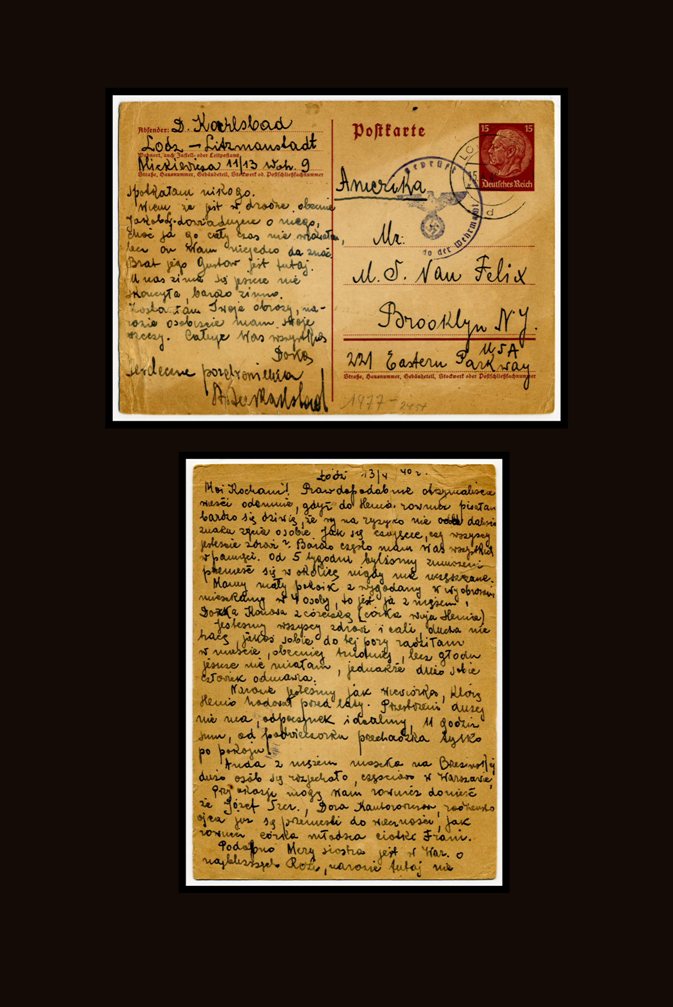 Absender: D. Karlsbad
Lodz – Litzmanstadt
Wohnort, auch Zustell- oder Leitpostamt
Mickiewicza 11/13 Woh. 9
Straße, Hausnummer, Gebäudeteil, Stockwerk od. Postschließfachnummer
spotkałam nikogo.
Wiem że jest w drodze, obecnie
dowiaduje o niego,
choć ja go cały czas nie widziałam,
lecz on Wam niejedno da znać.
Brat jego Gustaw jest tutaj.
U nas zima się jeszcze nie
skończyła, bardzo zimno.
Twoje obrazy, na-
razie osobiście mam swoje
rzeczy. Całuję Was wszystkich
Dorka
serdeczne pozdrowienia
Postkarte
15 15
Deutsches Reich
Geprüft
der Wehrmacht
Amerika
Mr.
M. S. Van Felix
Brooklyn N.Y.
USA
221 Eastern Parkway
Straße, Hausnummer, Gebäudeteil, Stockwerk oder Postschließfachnummer
1977-
Łódź 13/ 40 r.
Moi Kochani! Prawdopodobnie otrzymaliście
wieści odemnie, gdyż do Henia również pisałam
bardzo się dziwię, że wy na ryzyko nie dalście
znaku życia o sobie. Jak się czujecie, czy wszyscy
jesteście zdrowi? Bardzo często mam Was wszystkich
w pamięci. Od 5 tygodni byliśmy zmuszeni
przenieść się w okolicę nigdy nie
Mamy mały pokoik z wygodami w
mieszkamy w 4 osoby, to jest ja z mężem i
Dorka Konowa z córeczką (córka wuja Henia)
Jesteśmy wszyscy zdrowi i cali, ducha nie
tracę, jakoś sobie do tej pory radziłam
w mieście, obecnie trudniej, lecz głodu
jeszcze nie miałam, jednakże dużo sobie
człowiek odmawia.
Narazie jesteśmy jak wiewiórka, którą
Henio hodował przed laty. Przestrzeni dużej
nie ma, odpoczynek idealny, 11 godzin
snu, od podwieczorku przechadzka tylko
po pokoju!
Anda z mężem mieszka na
dużo osób się rozjechało, częściowo w Warszawie,
Przy okazji mogę Wam również donieść
że Józef Szer., Dora
ojca już się przenieśli do wieczności, jak
również córka młodsza ciotki Frani.
Podobno Mery siostra jest w War. o
najbliższych Rózi, narazie tutaj nie